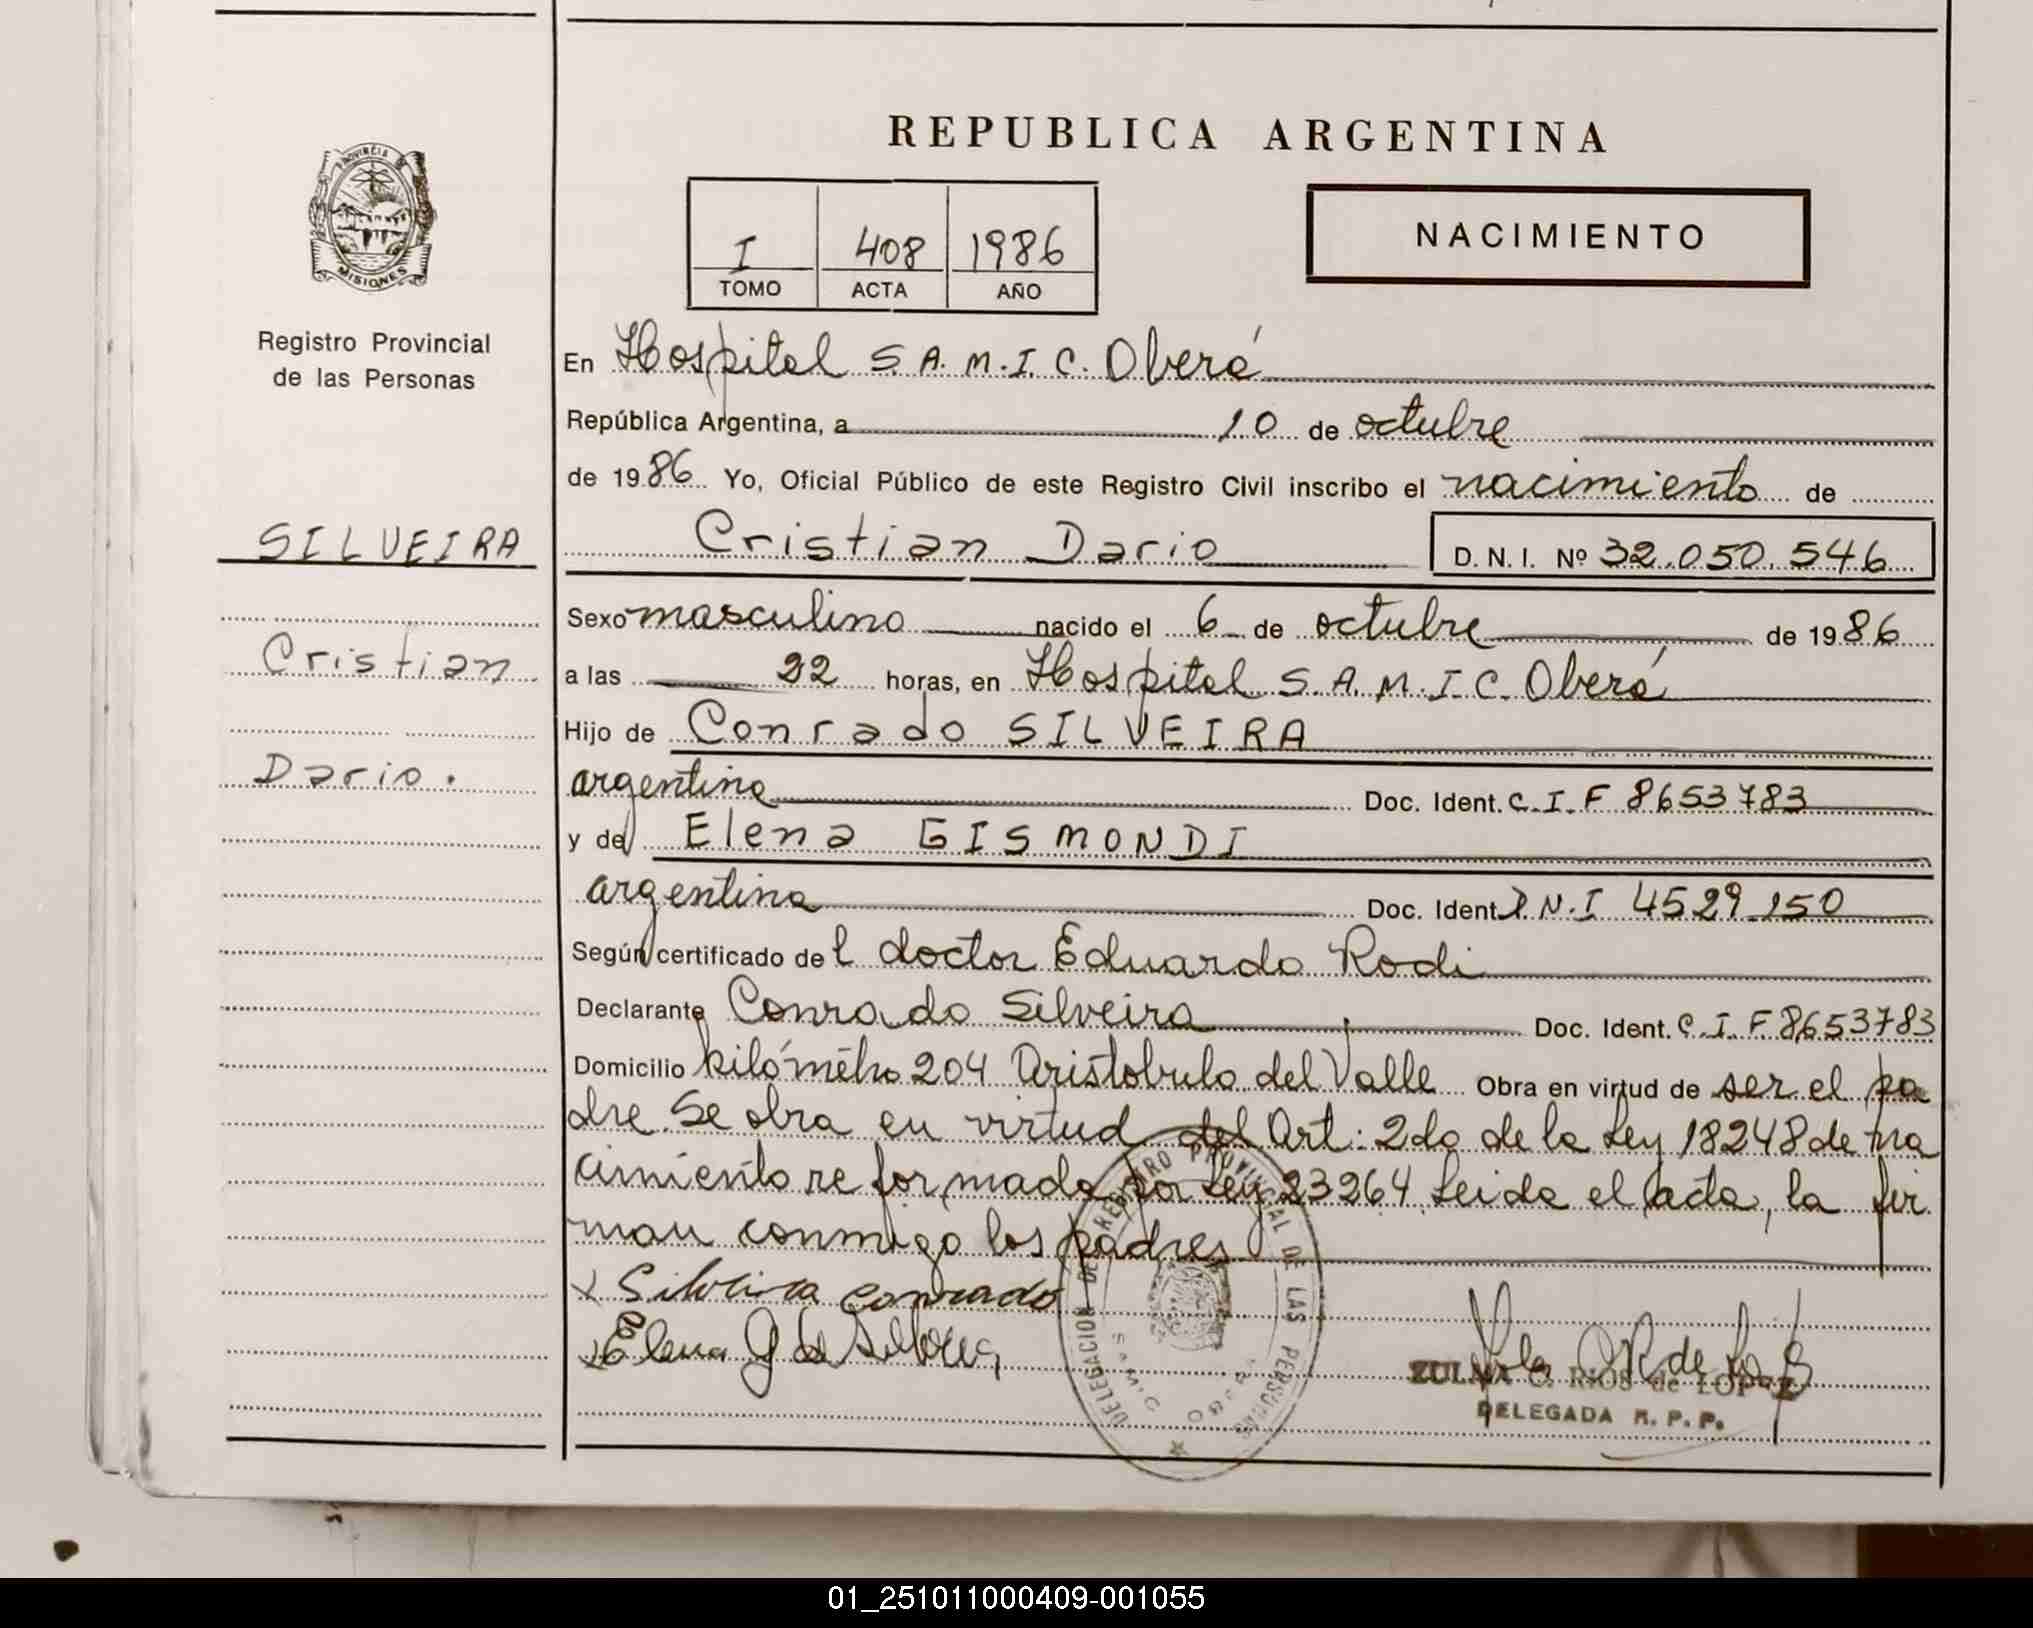 REPUBLICA ARGENTINA
PROVINCIA DE
MISIONES
Registro Provincial
de las Personas
I 408 1986
TOMO ACTA AÑO
NACIMIENTO
En Hospital S.A.M.I.C. Oberá
República Argentina, a 10 de octubre
de 1986 Yo, Oficial Público de este Registro Civil inscribo el nacimiento de
SILVEIRA
Cristian Dario D.N.I. Nº 32.050.546
Sexo masculino nacido el 6 de octubre de 1986
Cristian
a las 22 horas, en Hospital S.A.M.I.C. Oberá
Hijo de Conrado SILVEIRA
Dario.
argentina Doc. Ident. C.I.F 8653783
y de Elena GISMONDI
argentina Doc. Ident. D.N.I 4529.150
Según certificado del doctor Eduardo Rodi
Declarante Conrado Silveira Doc. Ident. C.I.F. 8653783
Domicilio kilómetro 204 Aristobulo del Valle Obra en virtud de ser el pa
dre. Se obra en virtud del Art: 2do de la Ley 18248 de na
cimiento reformada por Ley 23264. Leida el acta, la fir
man conmigo los padres
x Silveira conrado
x Elena G de Silveira
DELEGACION DE REGISTRO PROVINCIAL DE LAS PERSONAS
S.A.M.I.C. OBERA
ZULMA C. RIOS de LOPEZ
DELEGADA R.P.P.
01_251011000409-001055